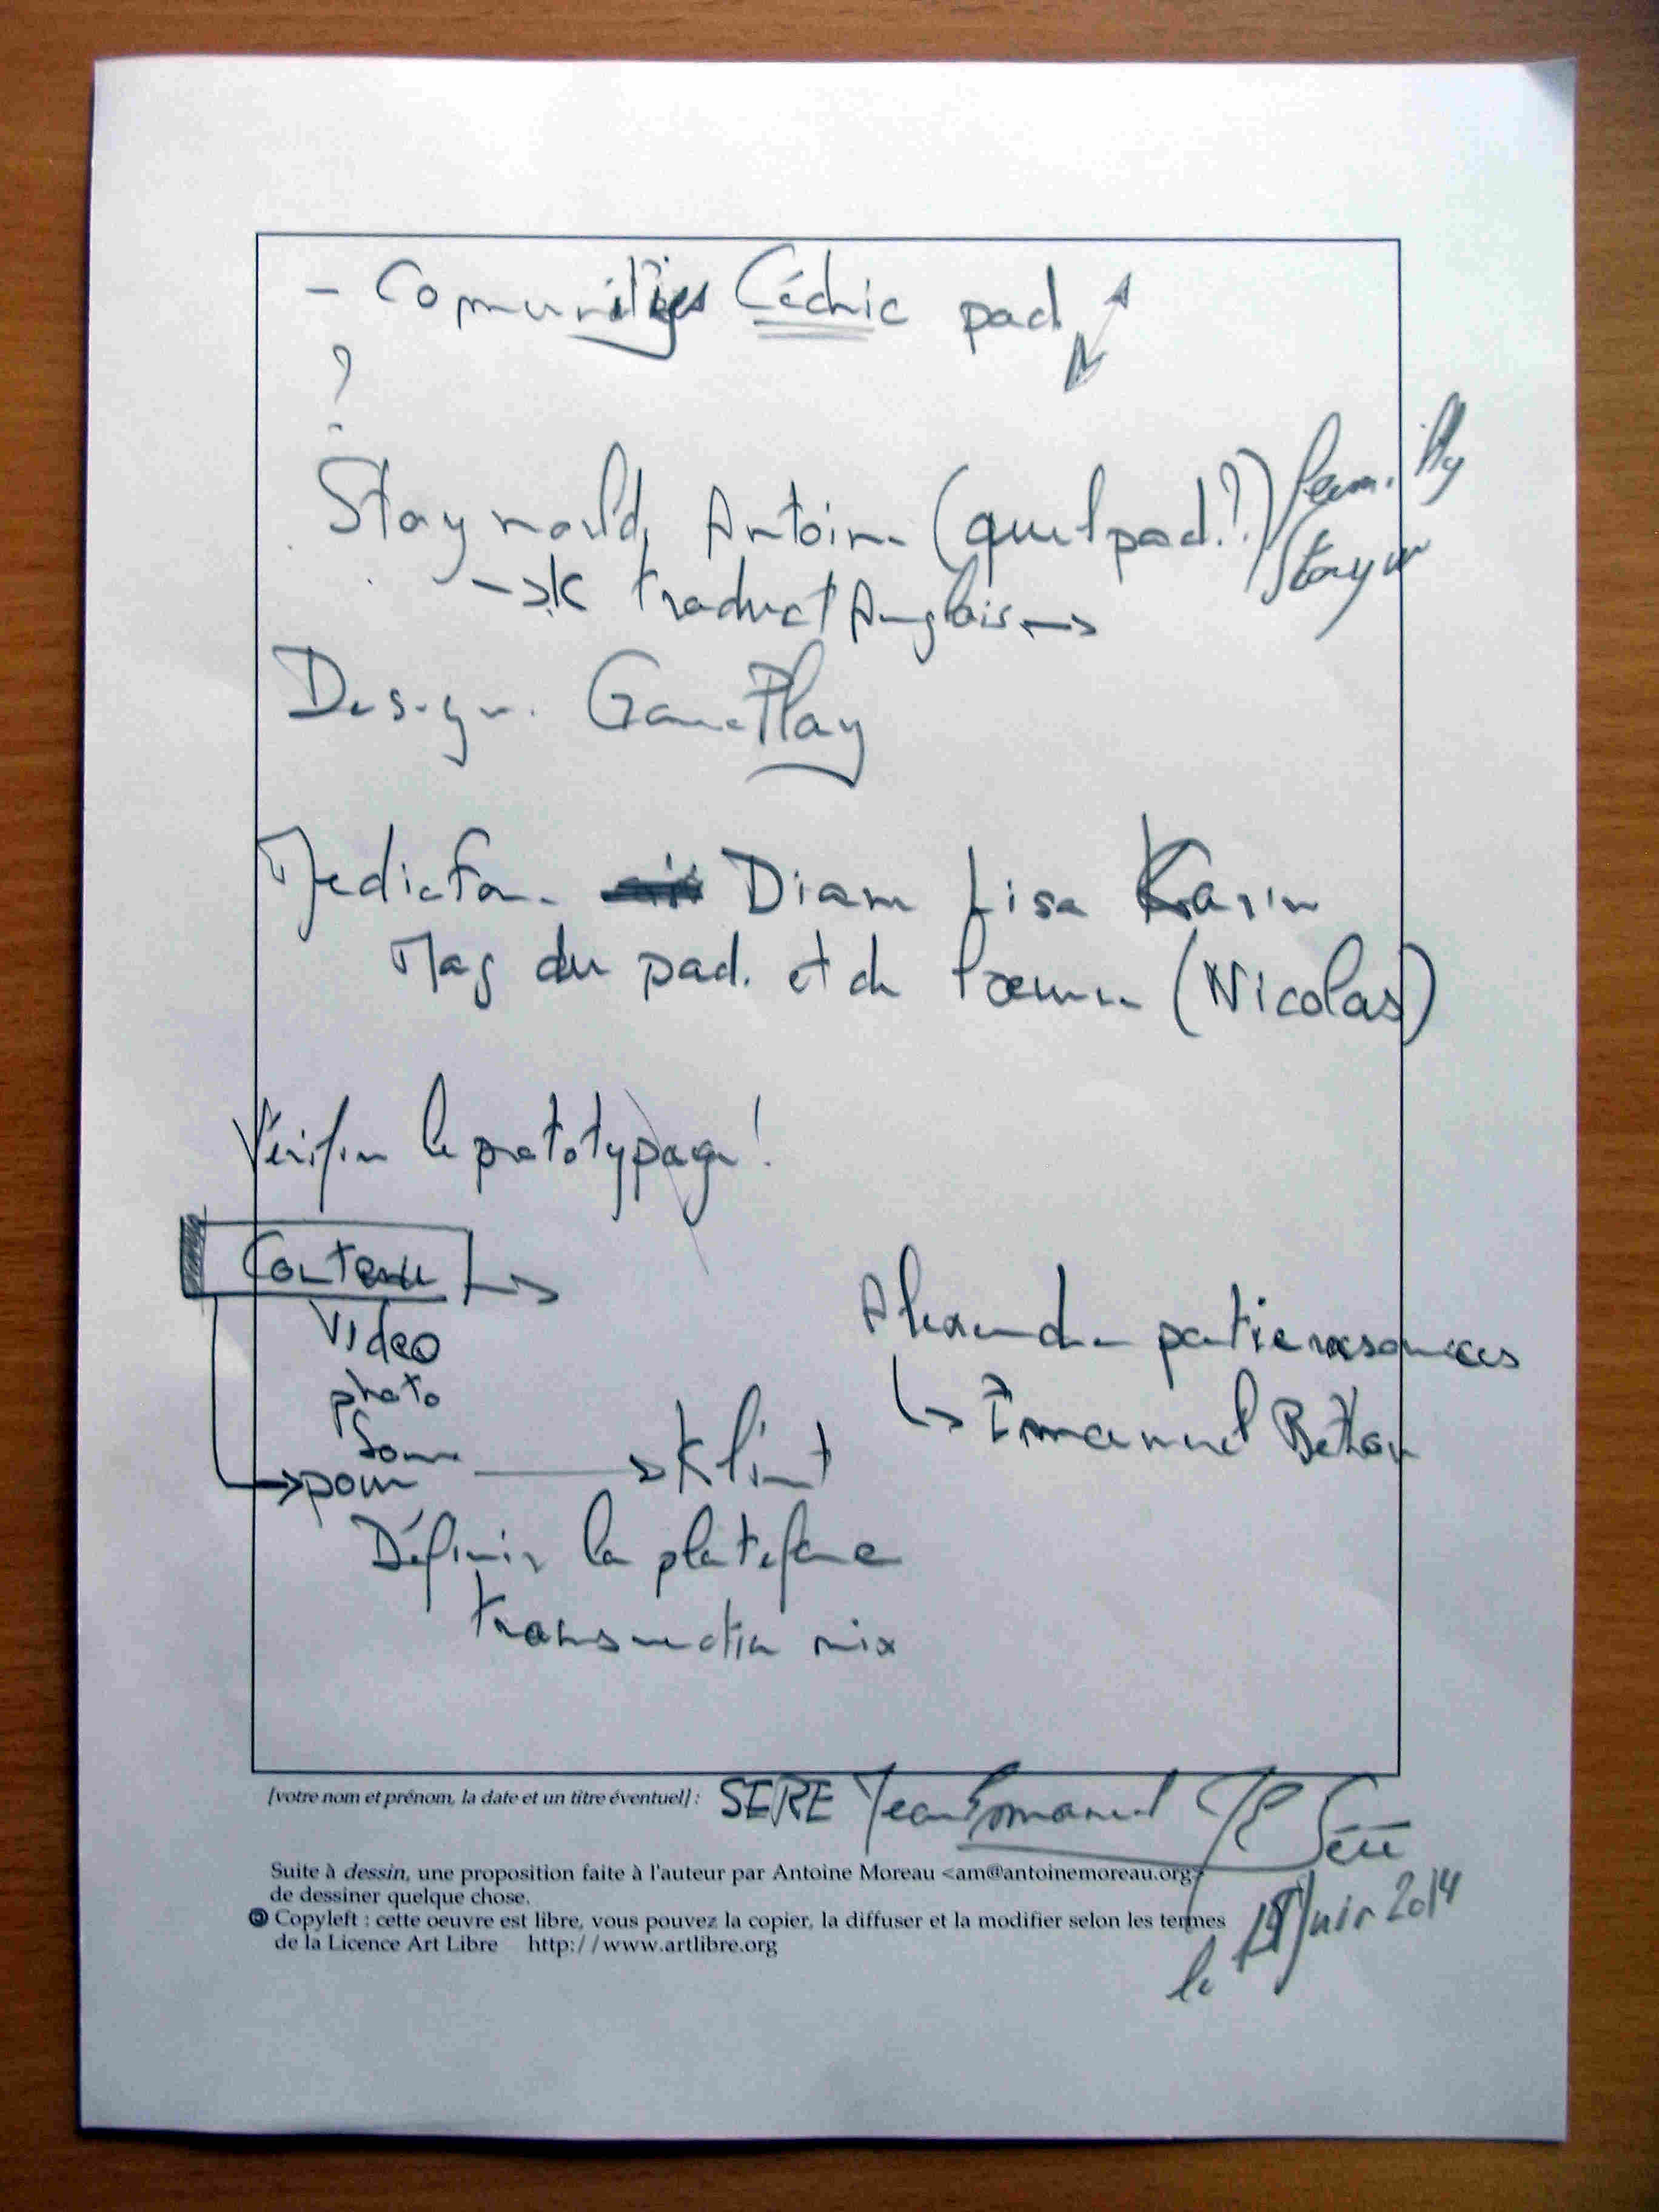 - Comunities Cédric pad
?
Story world, Antoine (quel pad!?)
Story w
→ traduct Anglais →
Design. GamePlay
Diane Lisa Karin
Mag du pad. et de (Nicolas)
Vérifier le prototypage!
Contenu
Video
photo
Son
pour → Klint
Alexandre partie ressources
↳ Emmanuel Bethou
Définir la plateforme
transmedia mix
[votre nom et prénom, la date et un titre éventuel] : SERE Jean Emmanuel JE Sere
Suite à dessin, une proposition faite à l'auteur par Antoine Moreau <am@antoinemoreau.org>
de dessiner quelque chose.
Copyleft : cette oeuvre est libre, vous pouvez la copier, la diffuser et la modifier selon les termes
de la Licence Art Libre http://www.artlibre.org
le Juin 2014